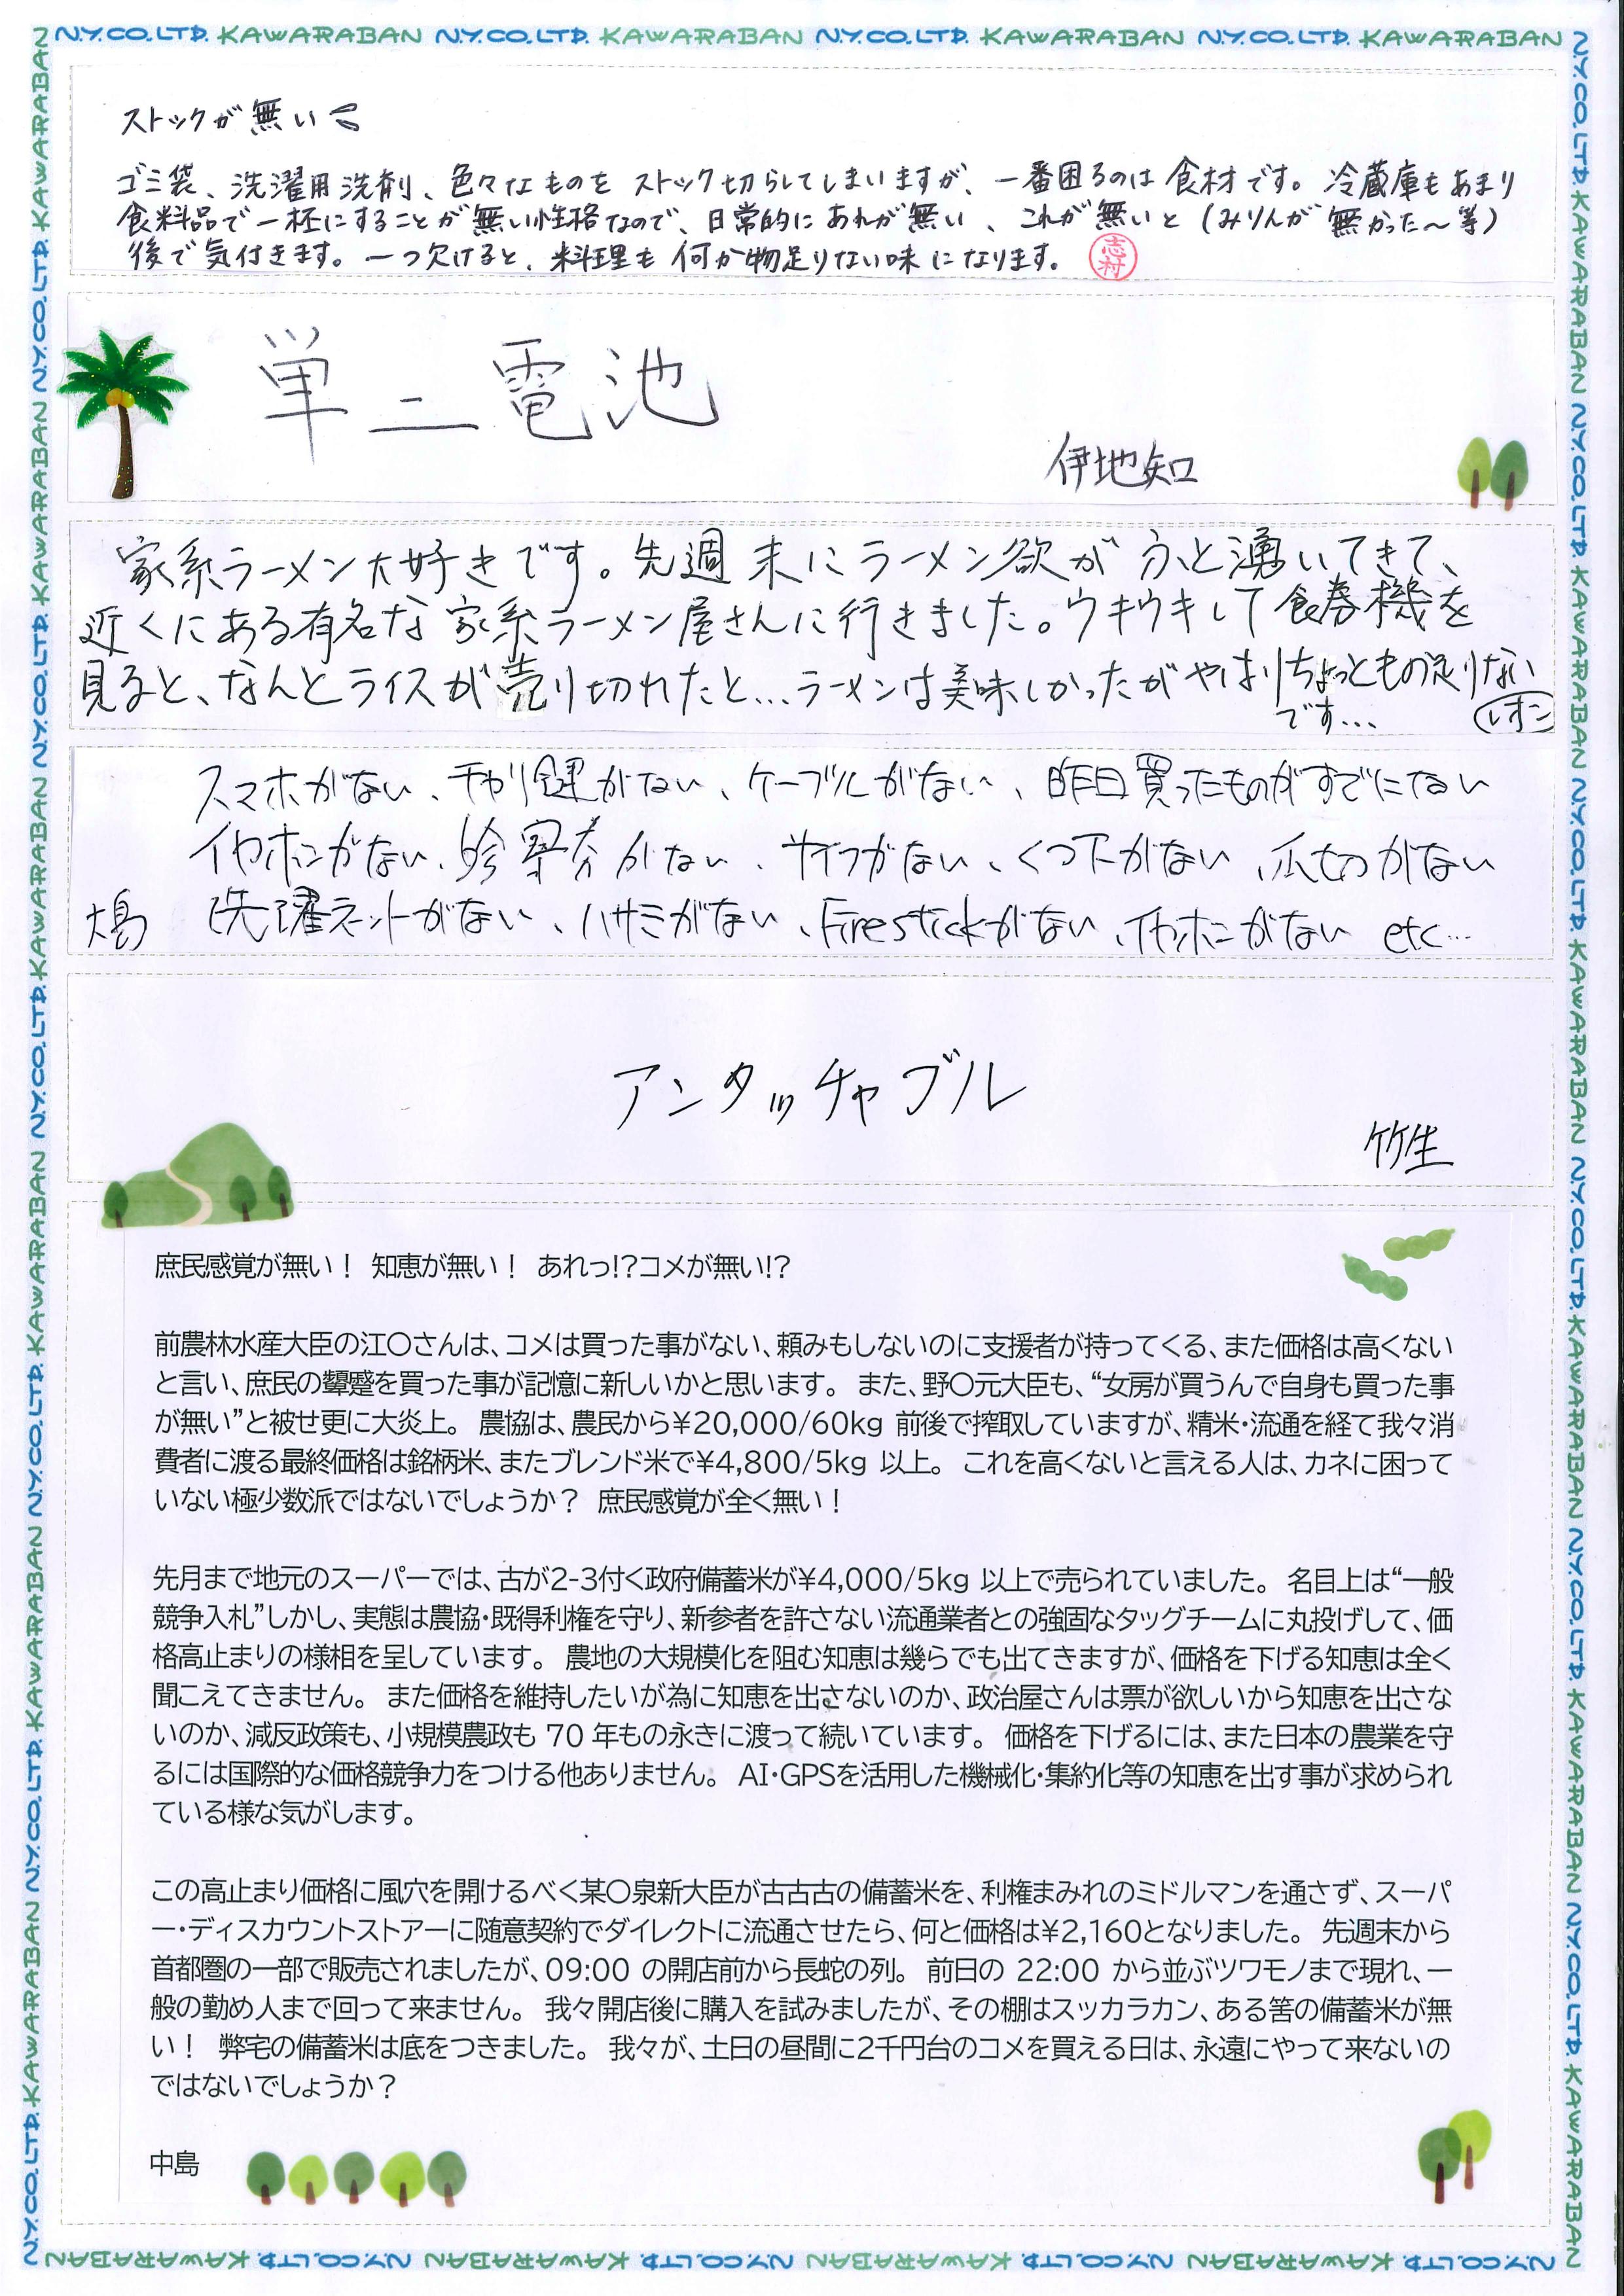 N.Y.CO.LTD. KAWARABAN N.Y.CO.LTD. KAWARABAN N.Y.CO.LTD. KAWARABAN N.Y.CO.LTD. KAWARABAN
ストックが無い
ゴミ袋、洗濯用洗剤、色々なものをストック切らしてしまいますが、一番困るのは食材です。冷蔵庫もあまり
食料品で一杯にすることが無い性格なので、日常的にあれが無い、これが無いと(みりんが無かった〜等)
後で気付きます。一つ欠けると、料理も何か物足りない味になります。 志村
単二電池
伊地知
家系ラーメン大好きです。先週末にラーメン欲がふと湧いてきて、
近くにある有名な家系ラーメン屋さんに行きました。ウキウキして食券機を
見ると、なんとライスが売り切れたと…ラーメンは美味しかったがやはりちょっともの足りない
です… レオン
スマホがない、チャリ鍵がない、ケーブルがない、昨日買ったものがすでにない
イヤホンがない、診察券がない、サイフがない、くつ下がない、爪切がない
大島 洗濯ネットがない、ハサミがない、Firestickがない、イヤホンがない etc…
アンタッチャブル
竹生
庶民感覚が無い! 知恵が無い! あれっ!?コメが無い!?
前農林水産大臣の江〇さんは、コメは買った事がない、頼みもしないのに支援者が持ってくる、また価格は高くない
と言い、庶民の顰蹙を買った事が記憶に新しいかと思います。 また、野〇元大臣も、“女房が買うんで自身も買った事
が無い”と被せ更に大炎上。 農協は、農民から¥20,000/60kg 前後で搾取していますが、精米・流通を経て我々消
費者に渡る最終価格は銘柄米、またブレンド米で¥4,800/5kg 以上。 これを高くないと言える人は、カネに困って
いない極少数派ではないでしょうか? 庶民感覚が全く無い!
先月まで地元のスーパーでは、古が2-3付く政府備蓄米が¥4,000/5kg 以上で売られていました。 名目上は“一般
競争入札”しかし、実態は農協・既得利権を守り、新参者を許さない流通業者との強固なタッグチームに丸投げして、価
格高止まりの様相を呈しています。 農地の大規模化を阻む知恵は幾らでも出てきますが、価格を下げる知恵は全く
聞こえてきません。 また価格を維持したいが為に知恵を出さないのか、政治屋さんは票が欲しいから知恵を出さな
いのか、減反政策も、小規模農政も 70 年もの永きに渡って続いています。 価格を下げるには、また日本の農業を守
るには国際的な価格競争力をつける他ありません。 AI・GPSを活用した機械化・集約化等の知恵を出す事が求められ
ている様な気がします。
この高止まり価格に風穴を開けるべく某〇泉新大臣が古古古の備蓄米を、利権まみれのミドルマンを通さず、スーパ
ー・ディスカウントストアーに随意契約でダイレクトに流通させたら、何と価格は¥2,160となりました。 先週末から
首都圏の一部で販売されましたが、09:00 の開店前から長蛇の列。 前日の 22:00 から並ぶツワモノまで現れ、一
般の勤め人まで回って来ません。 我々開店後に購入を試みましたが、その棚はスッカラカン、ある筈の備蓄米が無
い! 弊宅の備蓄米は底をつきました。 我々が、土日の昼間に2千円台のコメを買える日は、永遠にやって来ないの
ではないでしょうか?
中島
N.Y.CO.LTD. KAWARABAN N.Y.CO.LTD. KAWARABAN N.Y.CO.LTD. KAWARABAN N.Y.CO.LTD. KAWARABAN